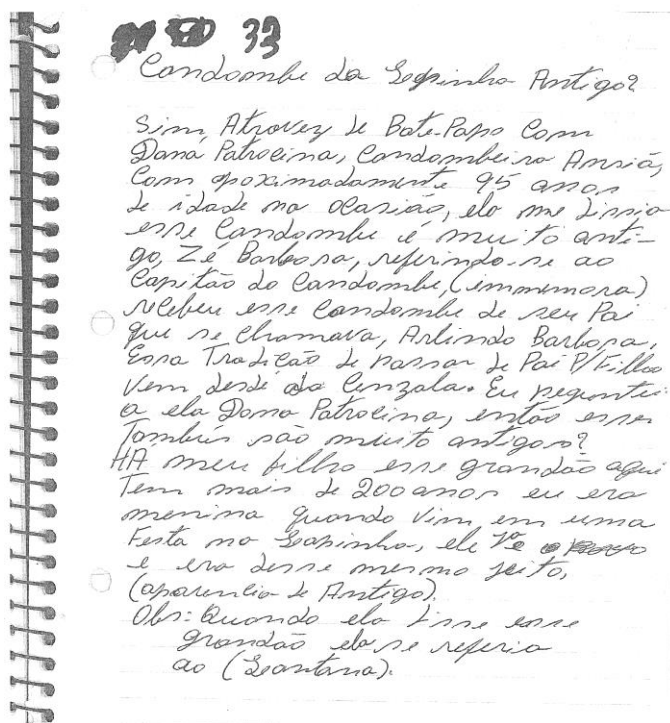 33
Candombe da Lapinha Antigo?
Sim, Atravez de Bate-Papo Com
Dona Patrocina, Candombeira Anciã,
Com apoximadamente 95 anos
de idade na ocasião, ela me dissia
esse Candombe é muito anti-
go, Zé Barbosa, referindo-se ao
Capitão do Candombe, (immemora)
recebeu esse Candombe de seu Pai
que se chamava, Arlindo Barbosa,
Essa Tradição de passar de Pai P/Filho
Vem desde da Cenzala. Eu peguntei
a ela Dona Patrocina, então esses
Também são muito antigos?
HÁ meu filho esse grandão aqui
Tem mais de 200 anos eu era
menina quando vim em uma
Festa na Lapinha, ele
e era desse mesmo jeito,
(aparencia de Antigo).
Obs: Quando ela disse esse
grandão ela se referia
ao (Santana).